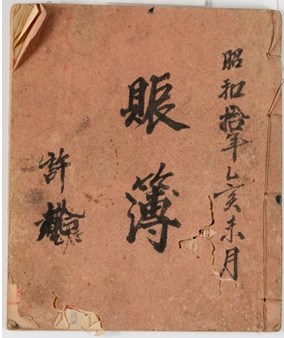 昭和拾年乙亥未月
賬簿
許